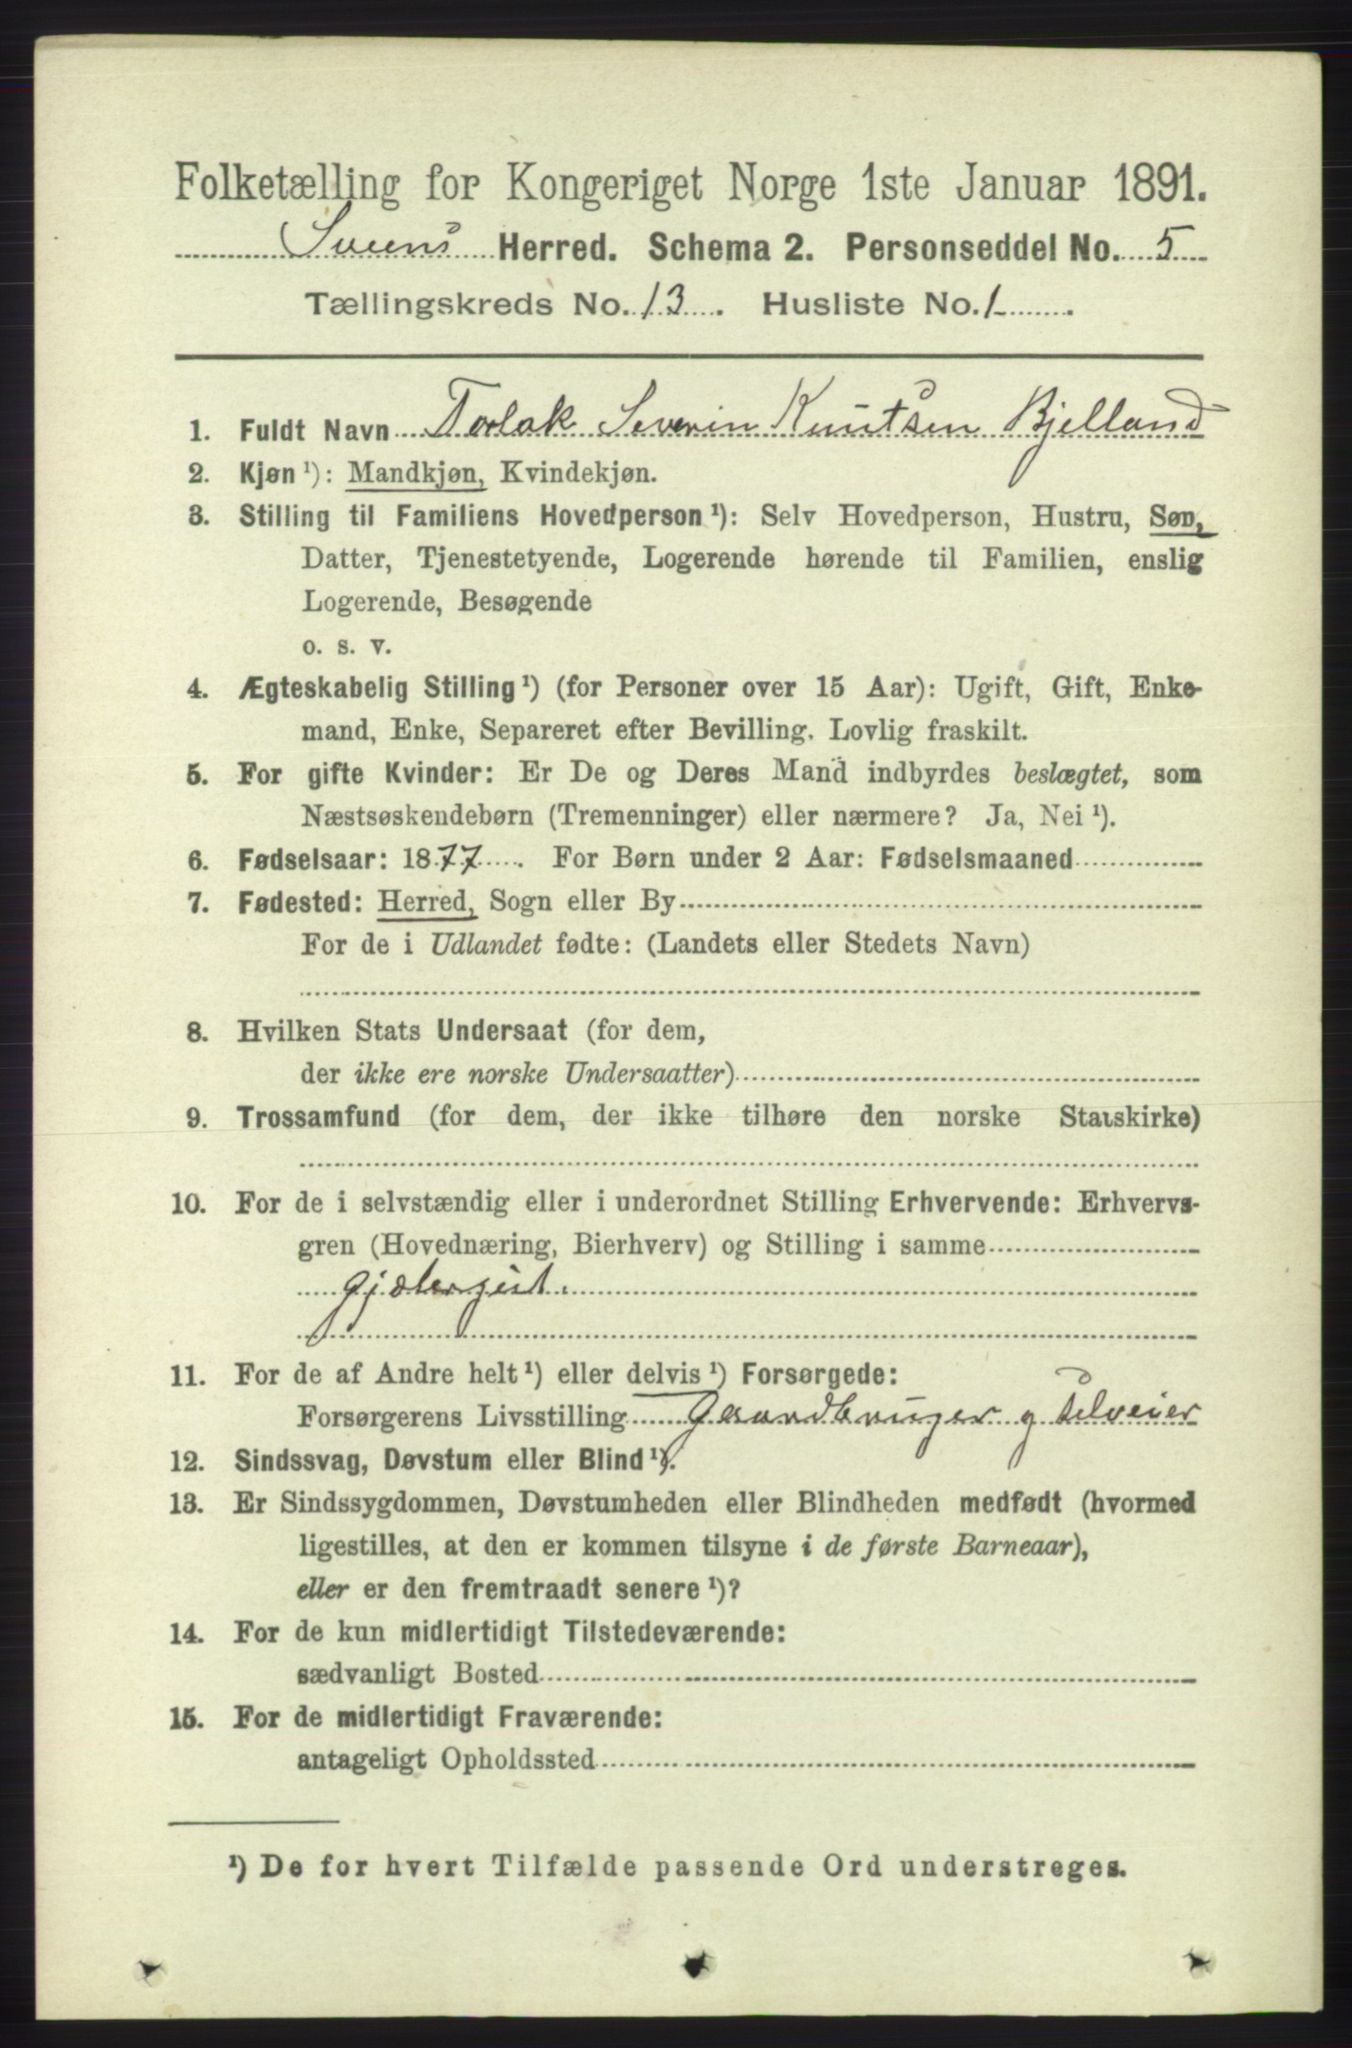 Folketælling for Kongeriget Norge 1ste Januar 1891.
Sveens Herred. Schema 2. Personseddel No. 5
Tællingskreds No. 13. Husliste No. 1.
1. Fuldt Navn Torlak Severin Knutsen Bjelland
2. Kjøn ¹): Mandkjøn, Kvindekjøn.
3. Stilling til Familiens Hovedperson ¹): Selv Hovedperson, Hustru, Søn,
Datter, Tjenestetyende, Logerende hørende til Familien, enslig
Logerende, Besøgende
o. s. v.
4. Ægteskabelig Stilling ¹) (for Personer over 15 Aar): Ugift, Gift, Enke-
mand, Enke, Separeret efter Bevilling. Lovlig fraskilt.
5. For gifte Kvinder: Er De og Deres Mand indbyrdes beslægtet, som
Næstsøskendebørn (Tremenninger) eller nærmere? Ja, Nei ¹).
6. Fødselsaar: 1877. For Børn under 2 Aar: Fødselsmaaned
7. Fødested: Herred, Sogn eller By
For de i Udlandet fødte: (Landets eller Stedets Navn)
8. Hvilken Stats Undersaat (for dem,
der ikke ere norske Undersaatter)
9. Trossamfund (for dem, der ikke tilhøre den norske Statskirke)
10. For de i selvstændig eller i underordnet Stilling Erhvervende: Erhvervs-
gren (Hovednæring, Bierhverv) og Stilling i samme
gjætergut.
11. For de af Andre helt ¹) eller delvis ¹) Forsørgede:
Forsørgerens Livsstilling Gaardbruger og selveier
12. Sindssvag, Døvstum eller Blind ¹).
13. Er Sindssygdommen, Døvstumheden eller Blindheden medfødt (hvormed
ligestilles, at den er kommen tilsyne i de første Barneaar),
eller er den fremtraadt senere ¹)?
14. For de kun midlertidigt Tilstedeværende:
sædvanligt Bosted
15. For de midlertidigt Fraværende:
antageligt Opholdssted
¹) De for hvert Tilfælde passende Ord understreges.